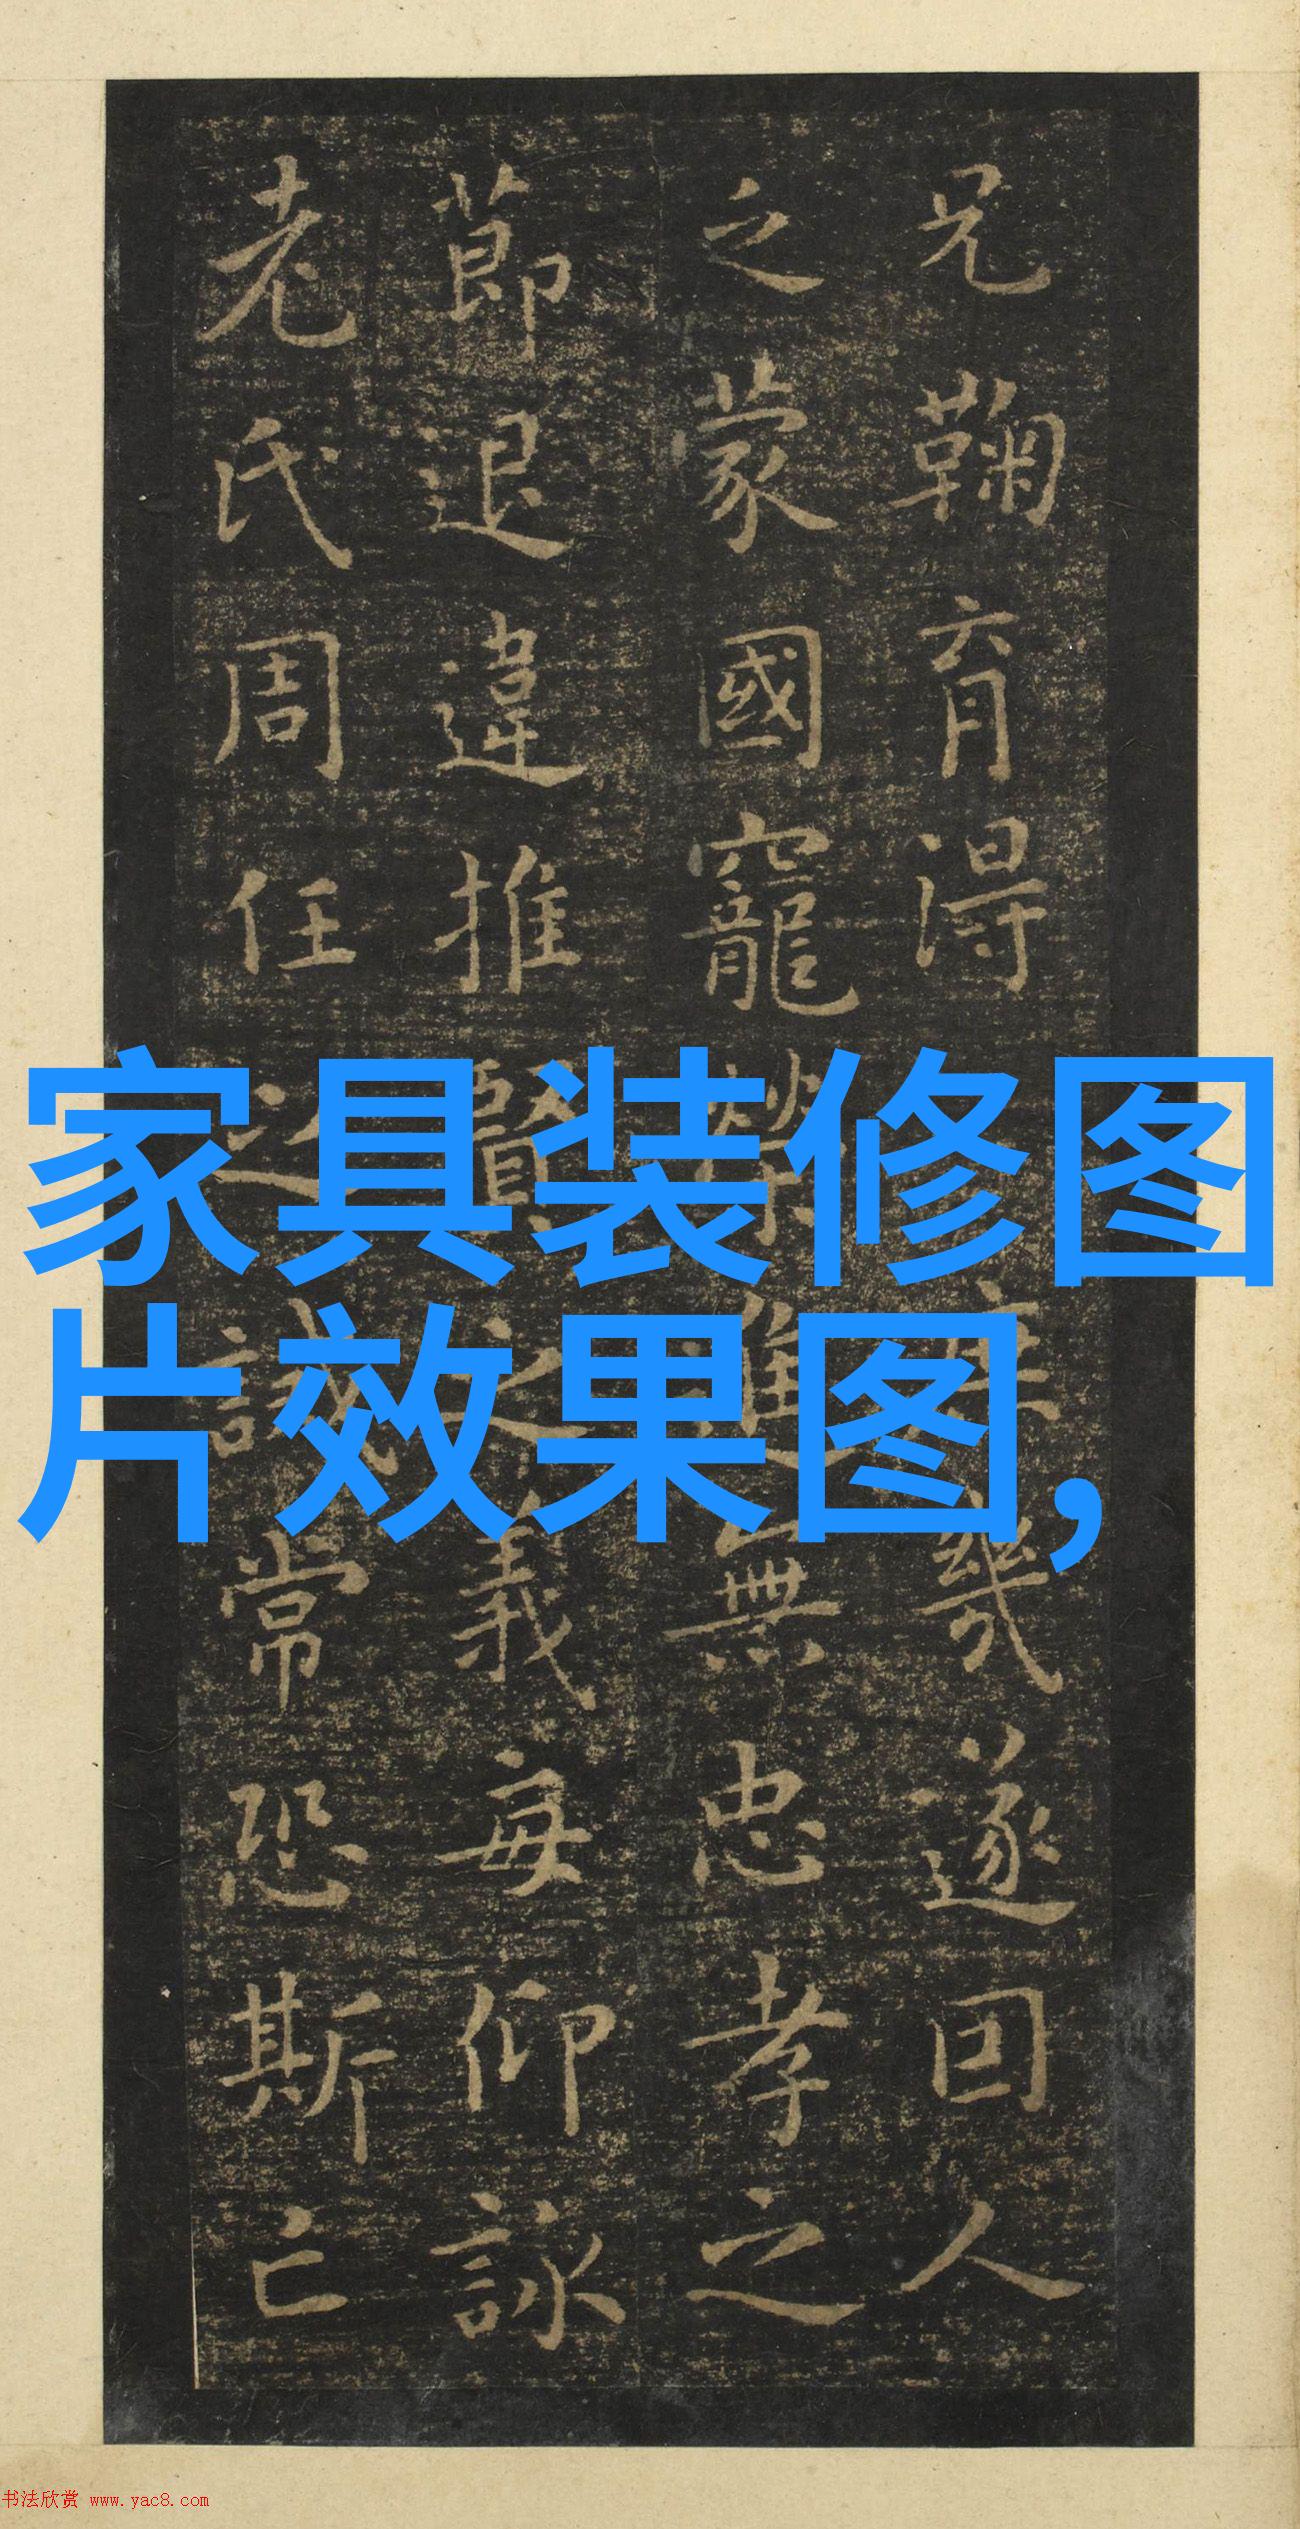 兄鞠育得幾遂囙人
乏蒙國寵榮進無忠孝之
節退違推賢之義每仰詠
老氏周任之誡常恐斯亡
家具装修图
片效果图，
书法欣赏 www.yac8.com